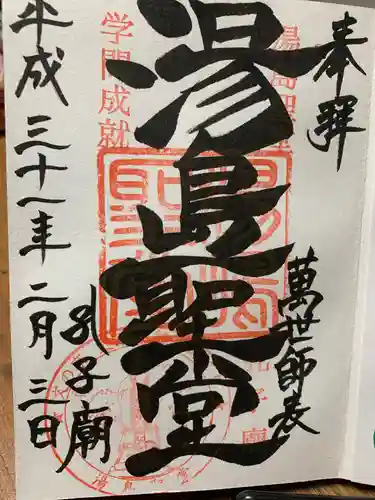 奉拝
萬世師表
湯島聖堂
湯島聖堂
学問成就
孔子廟
平成三十一年二月三日